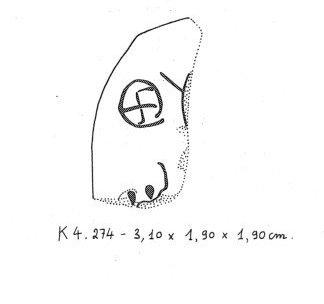 K 4.274 - 3,10 x 1,90 x 1,90 cm.